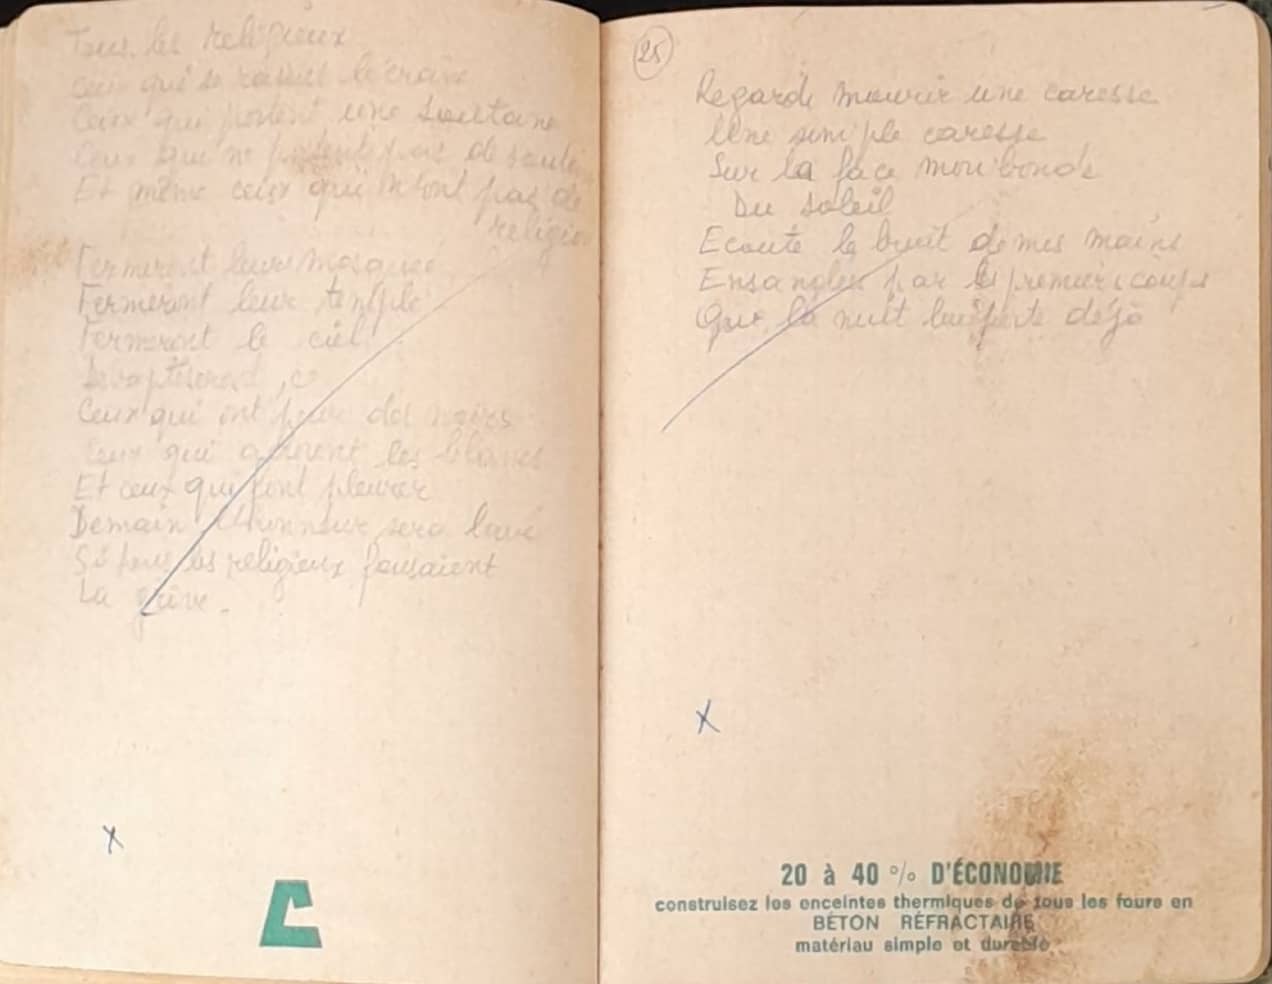 Tous les religieux
Ceux qui se rasent le crâne
Ceux qui portent une soutane
Ceux qui ne portent pas de
Et même ceux qui n'ont pas de
religio
Fermeront leur mosquée
Fermeront leur temple
Fermeront le ciel
Ceux qui ont peur des noirs
Ceux qui les blancs
Et ceux qui font pleurer
Demain l'honneur sera lavé
Si tous les religieux fousaient
La grève.
25
Regarde mourir une caresse
Une simple caresse
Sur la face moribonde
Du soleil
Ecoute le bruit de mes mains
par les premiers coups
Que la nuit déjà
X
X
C
20 à 40 % D'ÉCONOMIE
construisez les enceintes thermiques de tous les fours en
BÉTON RÉFRACTAIRE
matériau simple et durable